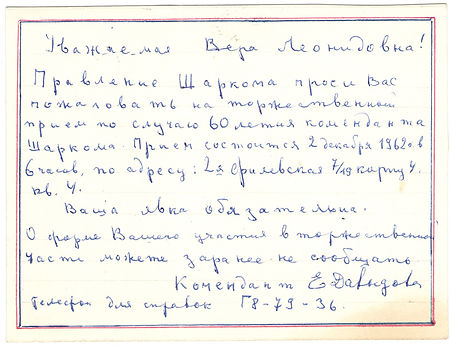 Уважаемая Вера Леонидовна!
Правление Шаркома проси Вас
пожаловать на торжественный
прием по случаю 60 летия коменданта
Шаркома. Прием состоится 2 декабря 1962 г. в
6 часов, по адресу: 2я Фрилевская 7/19 корпу 4.
кв. 4.
Ваша явка обязательна.
О форме Вашего участия в торжественной
части можете заранее не сообщать
Комендант Е Давыдова
Телефон для справок Г8-79-36.